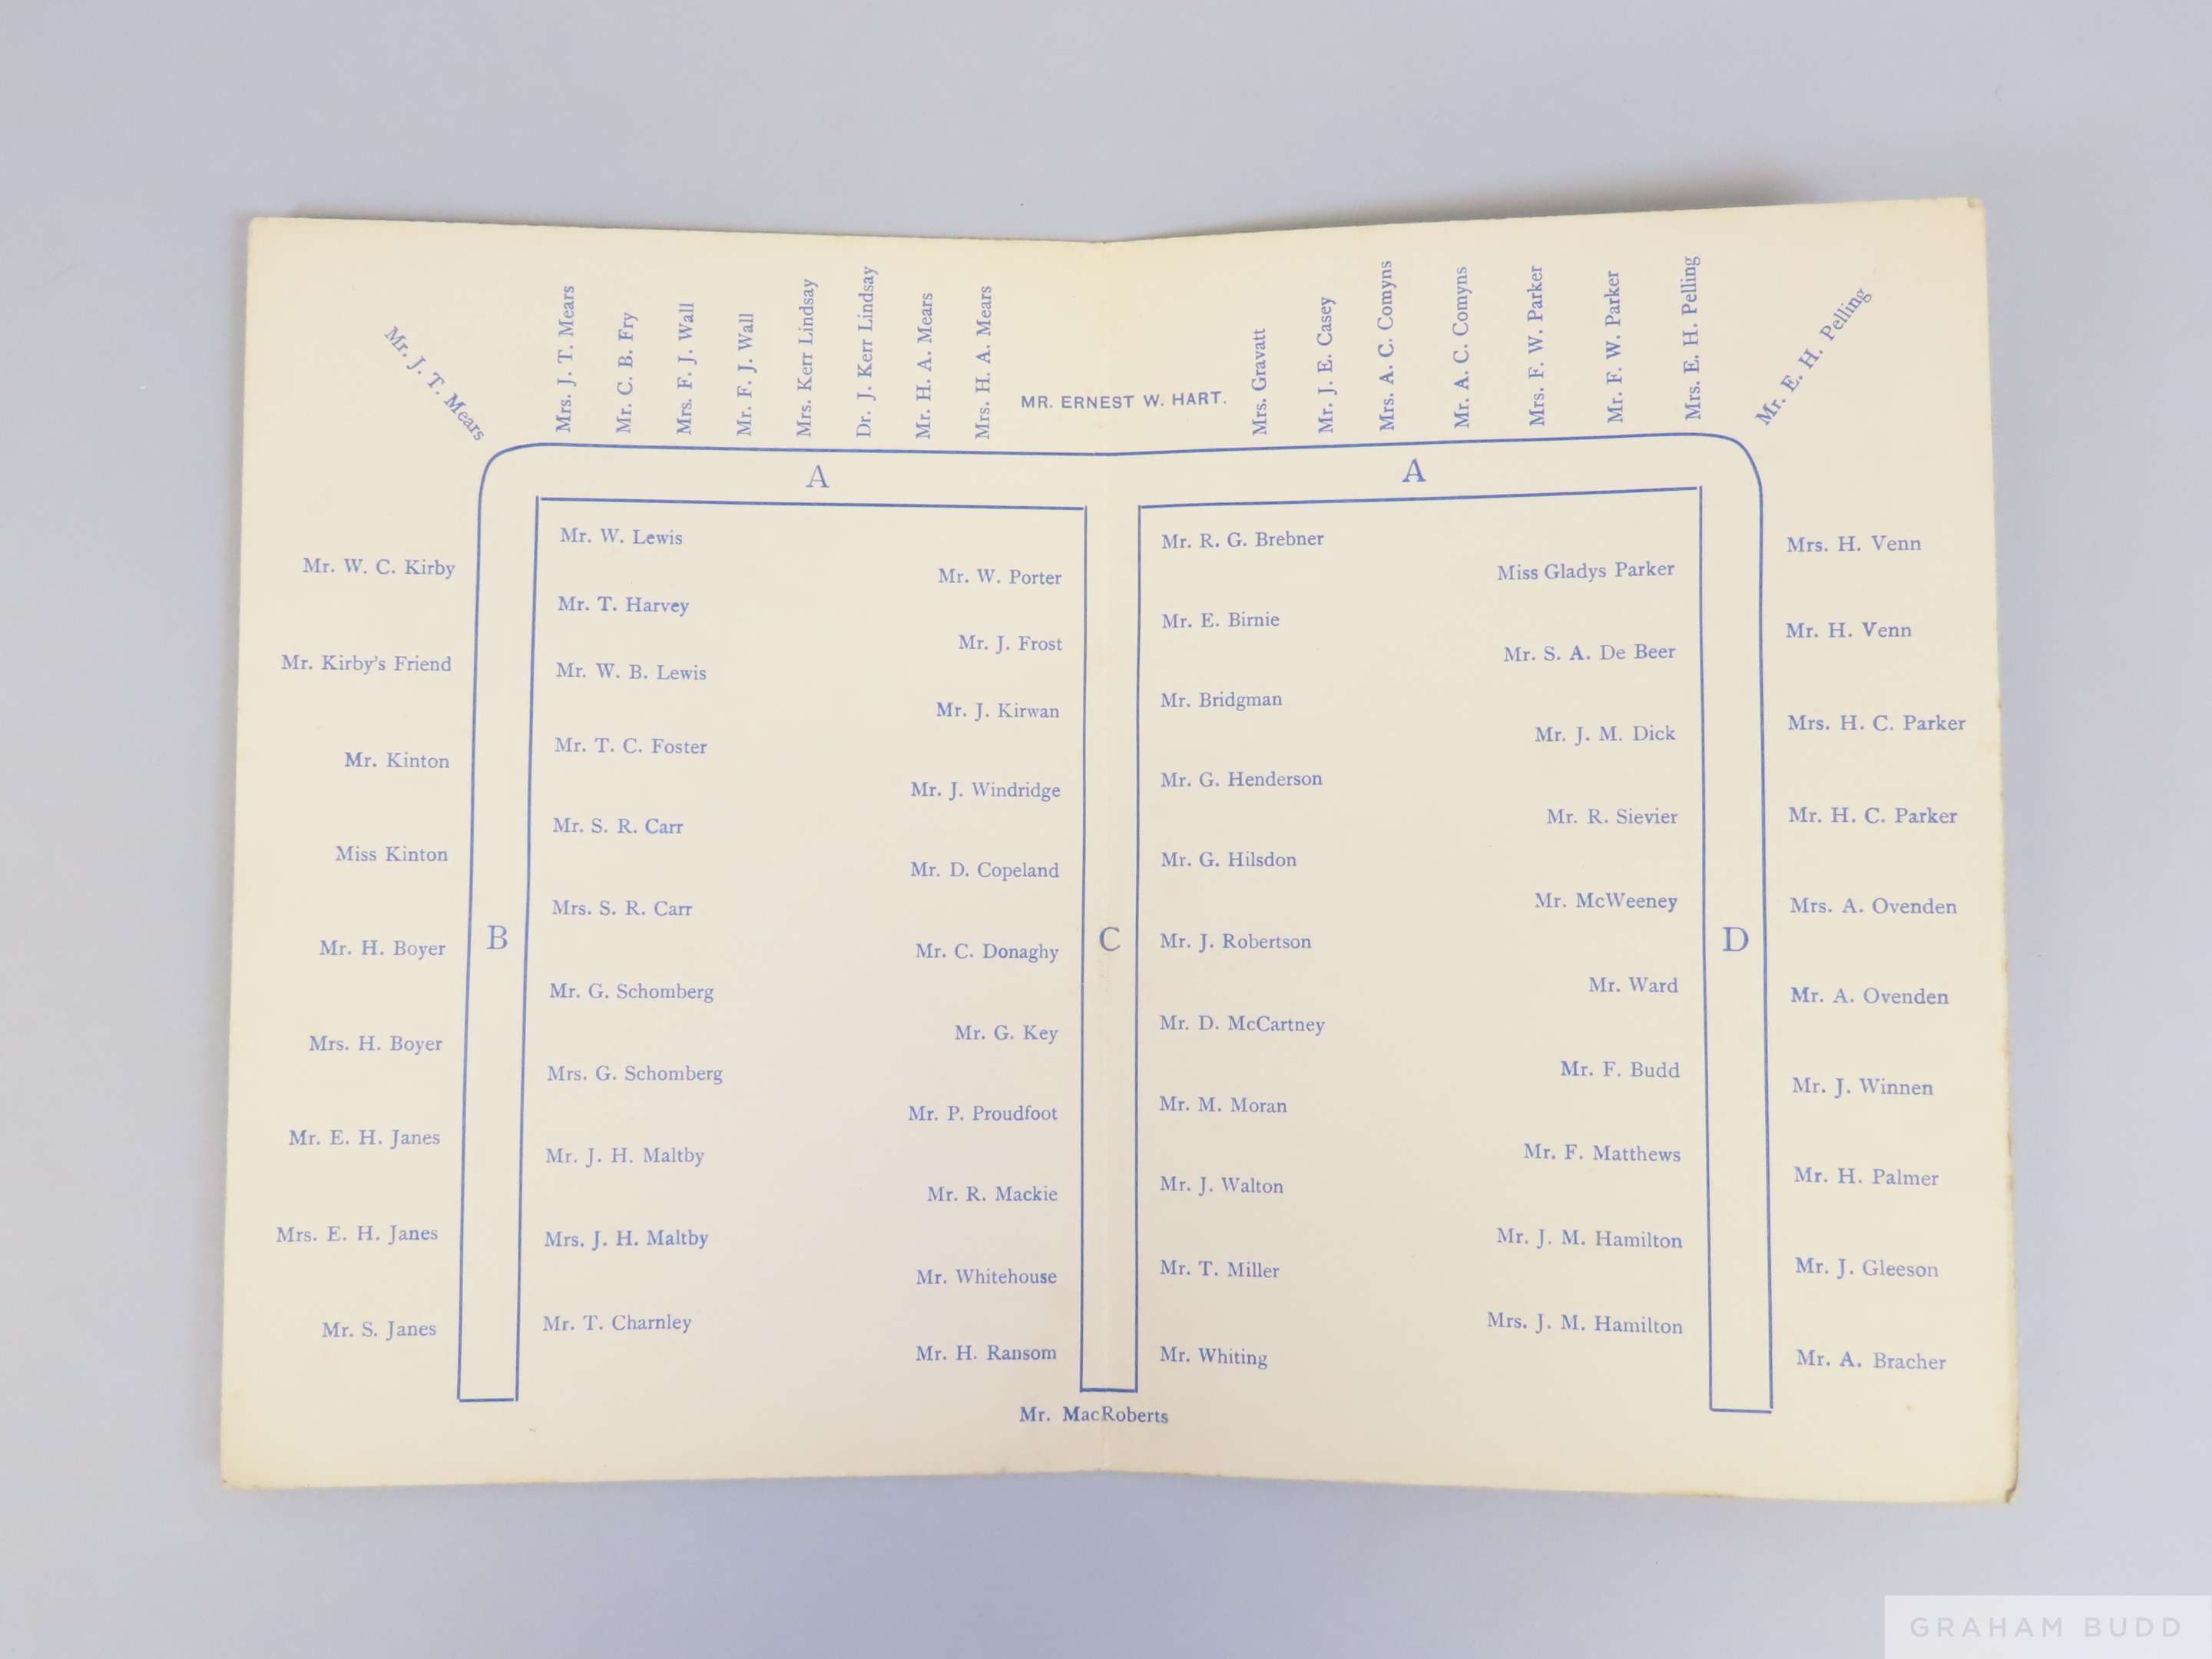 Mr. J. T. Mears
Mrs. J. T. Mears
Mr. C. B. Fry
Mrs. F. J. Wall
Mr. F. J. Wall
Mrs. Kerr Lindsay
Dr. J. Kerr Lindsay
Mr. H. A. Mears
Mrs. H. A. Mears
MR. ERNEST W. HART.
Mrs. Gravatt
Mr. J. E. Casey
Mrs. A. C. Comyns
Mr. A. C. Comyns
Mrs. F. W. Parker
Mr. F. W. Parker
Mrs. E. H. Pelling
Mr. E. H. Pelling
A
A
Mr. W. C. Kirby
Mr. Kirby's Friend
Mr. Kinton
Miss Kinton
Mr. H. Boyer
Mrs. H. Boyer
Mr. E. H. Janes
Mrs. E. H. Janes
Mr. S. Janes
B
Mr. W. Lewis
Mr. T. Harvey
Mr. W. B. Lewis
Mr. T. C. Foster
Mr. S. R. Carr
Mrs. S. R. Carr
Mr. G. Schomberg
Mrs. G. Schomberg
Mr. J. H. Maltby
Mrs. J. H. Maltby
Mr. T. Charnley
Mr. W. Porter
Mr. J. Frost
Mr. J. Kirwan
Mr. J. Windridge
Mr. D. Copeland
Mr. C. Donaghy
Mr. G. Key
Mr. P. Proudfoot
Mr. R. Mackie
Mr. Whitehouse
Mr. H. Ransom
C
Mr. MacRoberts
Mr. R. G. Brebner
Mr. E. Birnie
Mr. Bridgman
Mr. G. Henderson
Mr. G. Hilsdon
Mr. J. Robertson
Mr. D. McCartney
Mr. M. Moran
Mr. J. Walton
Mr. T. Miller
Mr. Whiting
Miss Gladys Parker
Mr. S. A. De Beer
Mr. J. M. Dick
Mr. R. Sievier
Mr. McWeeney
Mr. Ward
Mr. F. Budd
Mr. F. Matthews
Mr. J. M. Hamilton
Mrs. J. M. Hamilton
D
Mrs. H. Venn
Mr. H. Venn
Mrs. H. C. Parker
Mr. H. C. Parker
Mrs. A. Ovenden
Mr. A. Ovenden
Mr. J. Winnen
Mr. H. Palmer
Mr. J. Gleeson
Mr. A. Bracher
GRAHAM BUDD